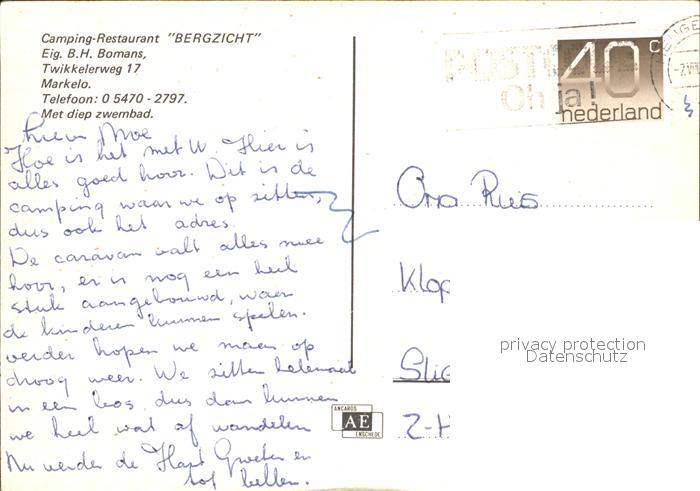 Camping-Restaurant "BERGZICHT"
Eig. B.H. Bomans,
Twikkelerweg 17
Markelo.
Telefoon: 0 5470 - 2797.
Met diep zwembad.
Moe
Hoe is het met U. Hier is
alles goed hoor. Dit is de
camping waar we op zitten,
dus ook het adres.
De caravan valt alles mee
hoor, er is nog een heel
stuk aangebouwd, waar
de kinderen kunnen spelen.
verder hopen we maar op
droog weer. We zitten helemaal
in een bos dus dan kunnen
we heel wat af wandelen
Nu verder de Hart Groeten en
tot bellens.
POST
Oh ja!
40 c
nederland
Oma
Klop
Slie
Z-H
privacy protection
Datenschutz
ANCARDS
AE
ENSCHEDE